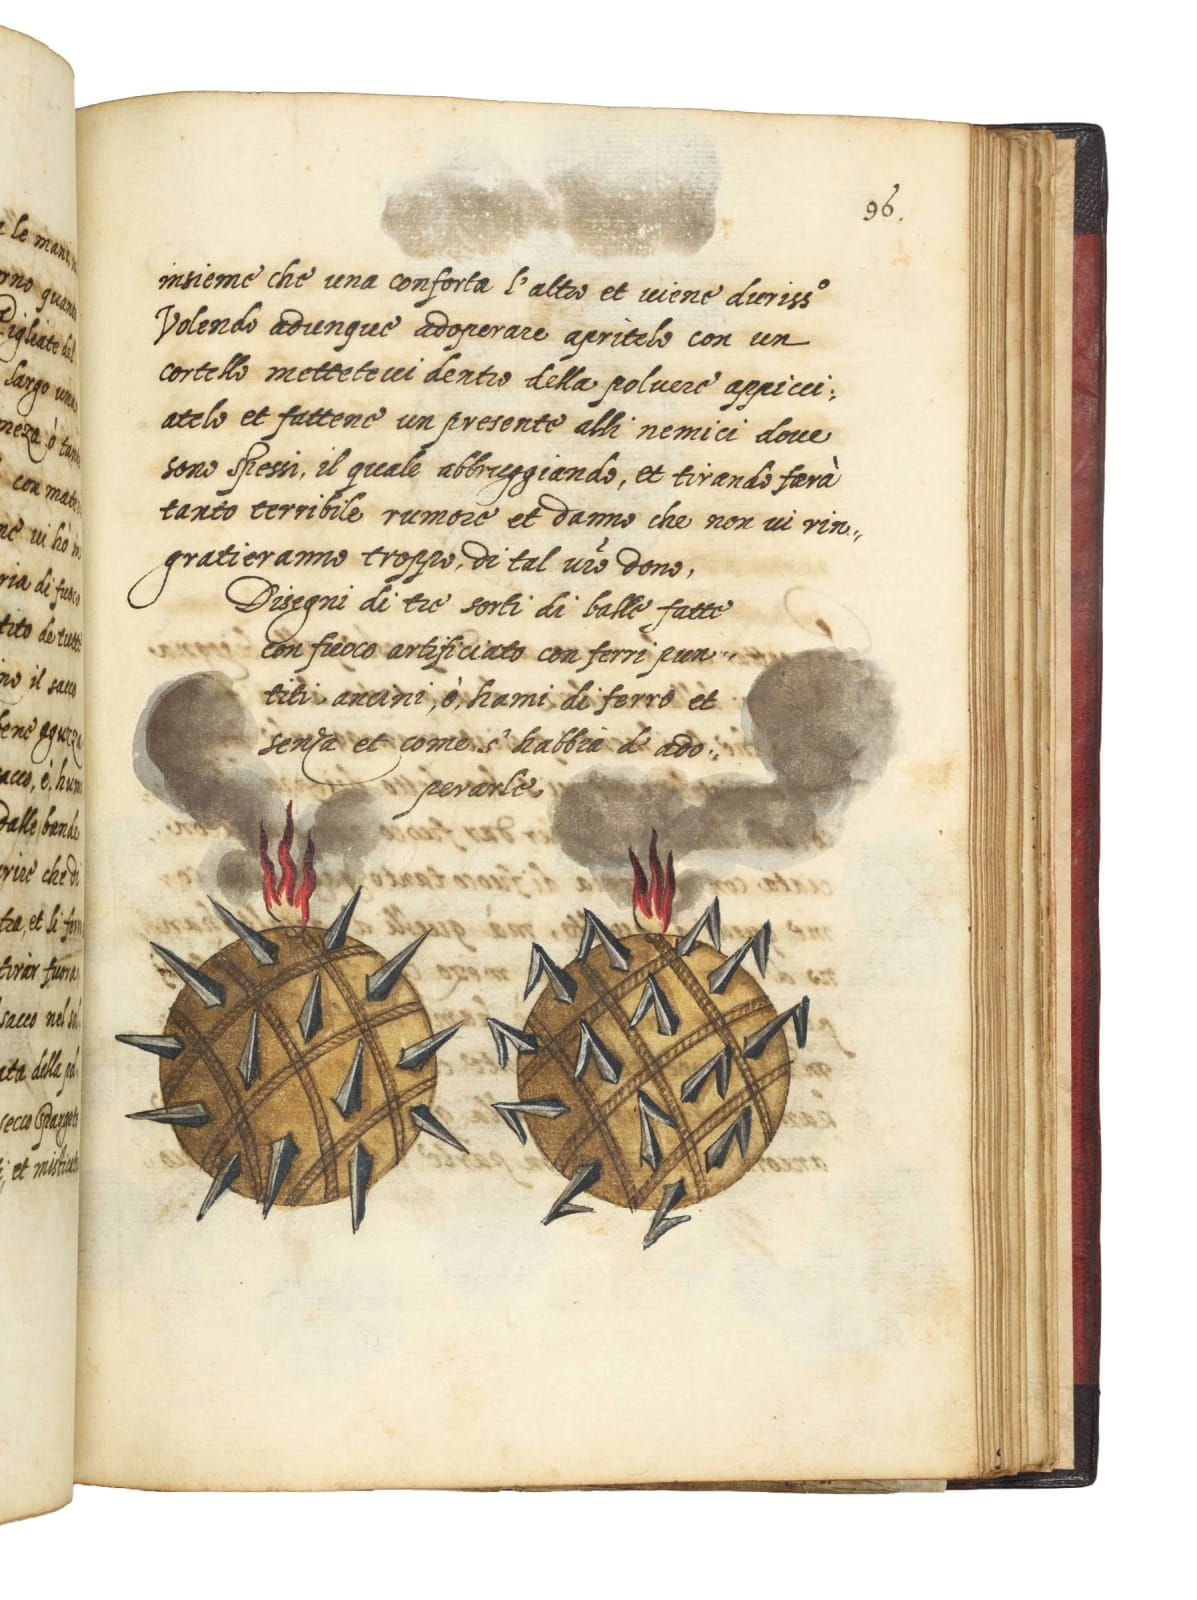 a le mani,
rno quand
Pigliate del
largo una
meza ò tan
con mate
ne ui hò in
ria di fuoco
tito de tutti
no il sacco
bene aguzza
sacco, ò, hum
dalle bande
rire che di
tra, et li ferr
tirar fuora
sacco nel sol
ata della pol
secco spargete
et misticate
96.
insieme che una conforta l'altro et uiene duriss.o
Volendo adunque adoperare apritelo con un
cortello metteteui dentro della poluere appicci:,
atelo et fattene un presente alli nemici doue
sono spessi, il quale abbruggiando, et tirando farà
tanto terribile rumore et danno che non ui rin:,
gratieranno troppo, di tal uro dono,
Disegni di tre sorti di balle fatte
con fuoco artificiato con ferri pun:,
titi, ancini, ò, hami di ferro et
senza et come s'habbia d'ado:,
perarle,